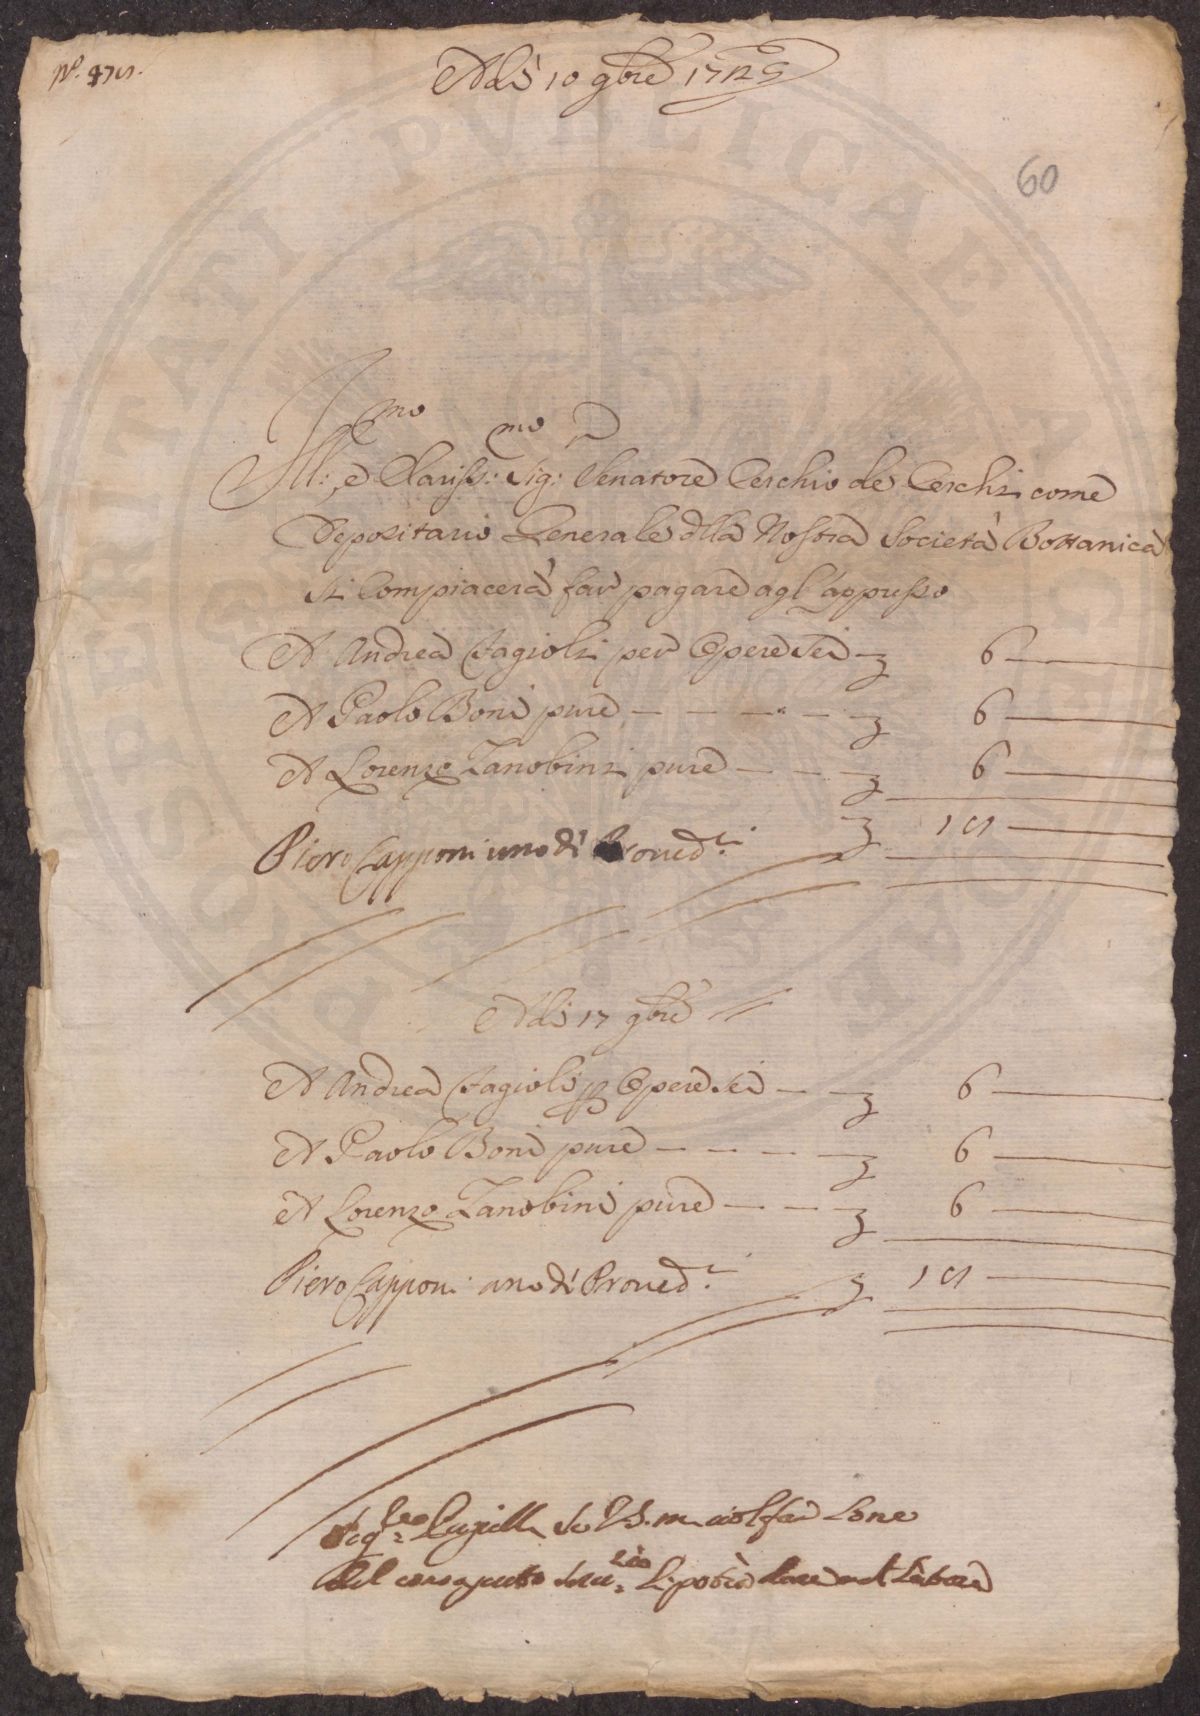 Adì 10 9bre 1725
60
Ill:mo e Clariss:mo Sig:r Senatore Cerchio de Cerchi come
Depositario Generale dlla Nostra Società Bottanica
si Compiacerà far pagare agl'appresso
A Andrea Fagioli per Opere sei — 6 —
A Paolo Boni pure — — — — 6 —
A Lorenzo Zanobini pure — — 6 —
Piero Capponi uno di Proved.ri 18 —
Adì 17 9bre
A Andrea Fagioli p Opere sei — — 6 —
A Paolo Boni pure — — — — 6 —
A Lorenzo Zanobini pure — — — 6 —
Piero Capponi uno di Proved.ri 18 —
PROSPERITATI PVBLICAE AVGENDAE